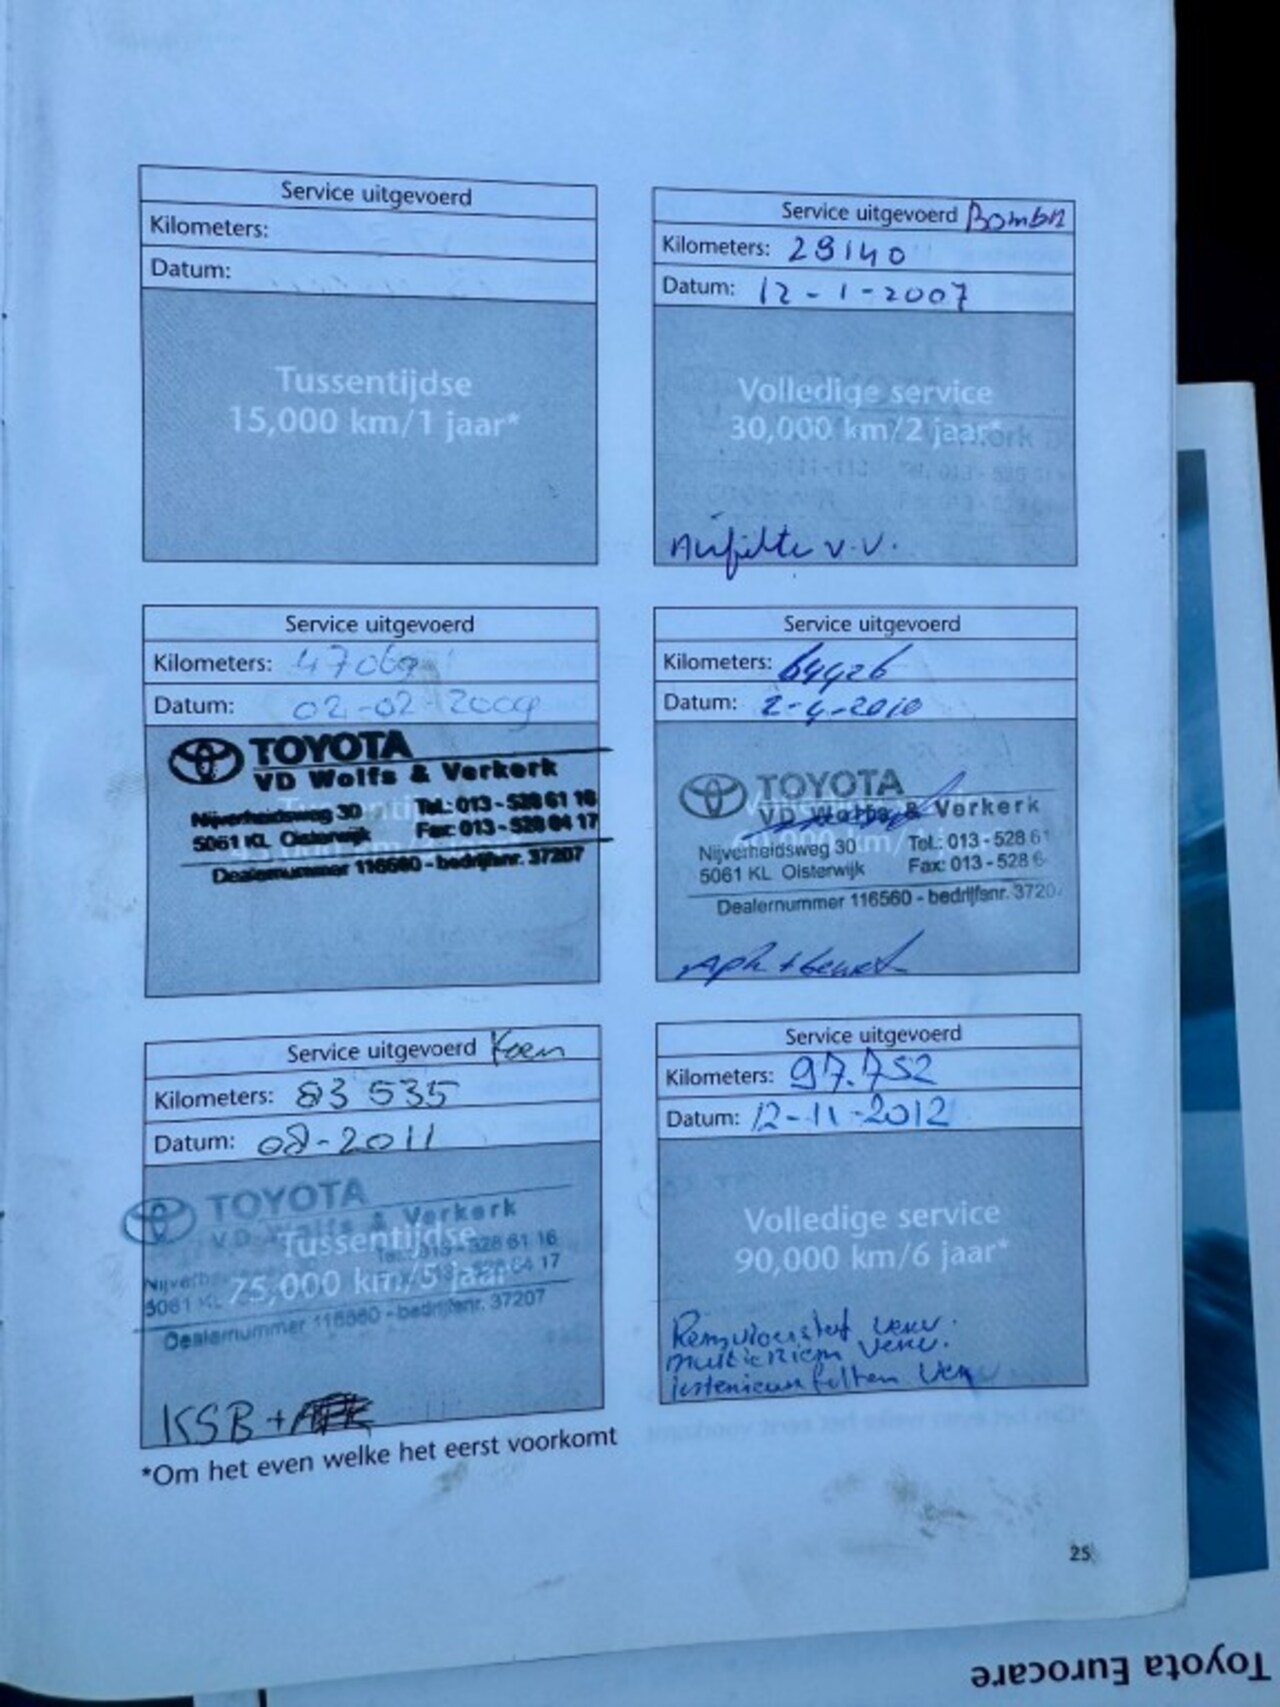 Service uitgevoerd
Kilometers:
Datum:
Tussentijdse
15,000 km/1 jaar*
Service uitgevoerd
Kilometers: 29140
Datum: 12-1-2007
Volledige service
30,000 km/2 jaar*
v.v.
Service uitgevoerd
Kilometers: 47069
Datum: 02-02-2009
TOYOTA
VD Wolfs & Verkerk
Nijverheidsweg 30 Tel.: 013-528 61 16
5061 KL Oisterwijk Fax: 013-528 84 17
Dealernummer 116560 - bedrijfsnr. 37207
Service uitgevoerd
Kilometers: 64926
Datum: 2-4-2010
TOYOTA
VD Wolfs & Verkerk
Nijverheidsweg 30 Tel.: 013-528 61
5061 KL Oisterwijk Fax: 013-528 6
Dealernummer 116560 - bedrijfsnr. 3720
Service uitgevoerd Koen
Kilometers: 83 535
Datum: 08-2011
TOYOTA
VD Wolfs & Verkerk
Tussentijdse
75,000 km/5 jaar
5061 KL
Dealernummer 116560 - bedrijfsnr. 37207
KSB +
Service uitgevoerd
Kilometers: 97.752
Datum: 12-11-2012
Volledige service
90,000 km/6 jaar*
Remvloeistof verv.
multiriem verv.
interieur filter verv
*Om het even welke het eerst voorkomt
25
Toyota Eurocare